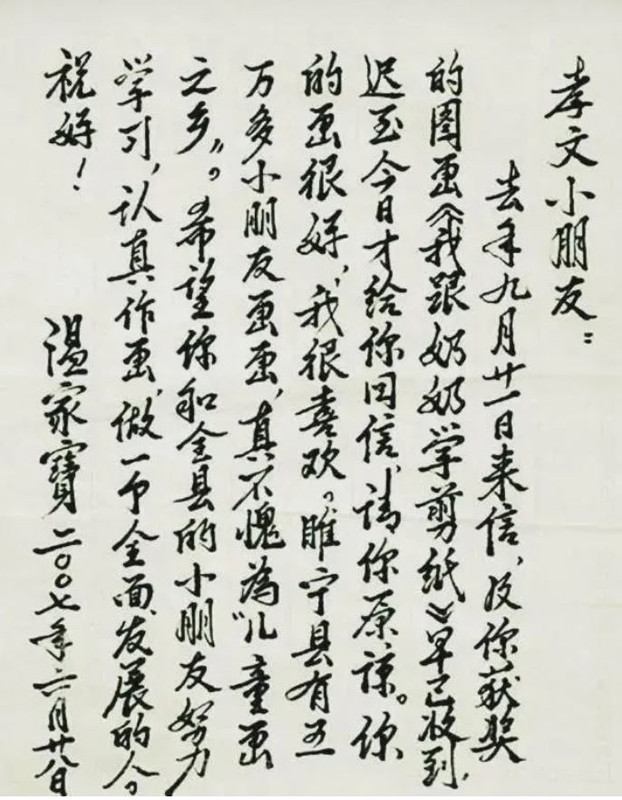 孝文小朋友：
去年九月廿一日来信，及你获奖
的图画《我跟奶奶学剪纸》早已收到，
迟至今日才给你回信，请你原谅。你
的画很好，我很喜欢。睢宁县有五
万多小朋友画画，真不愧为“儿童画
之乡”。希望你和全县的小朋友努力
学习，认真作画，做一个全面发展的人。
祝好！
温家寳二〇〇七年六月廿八日